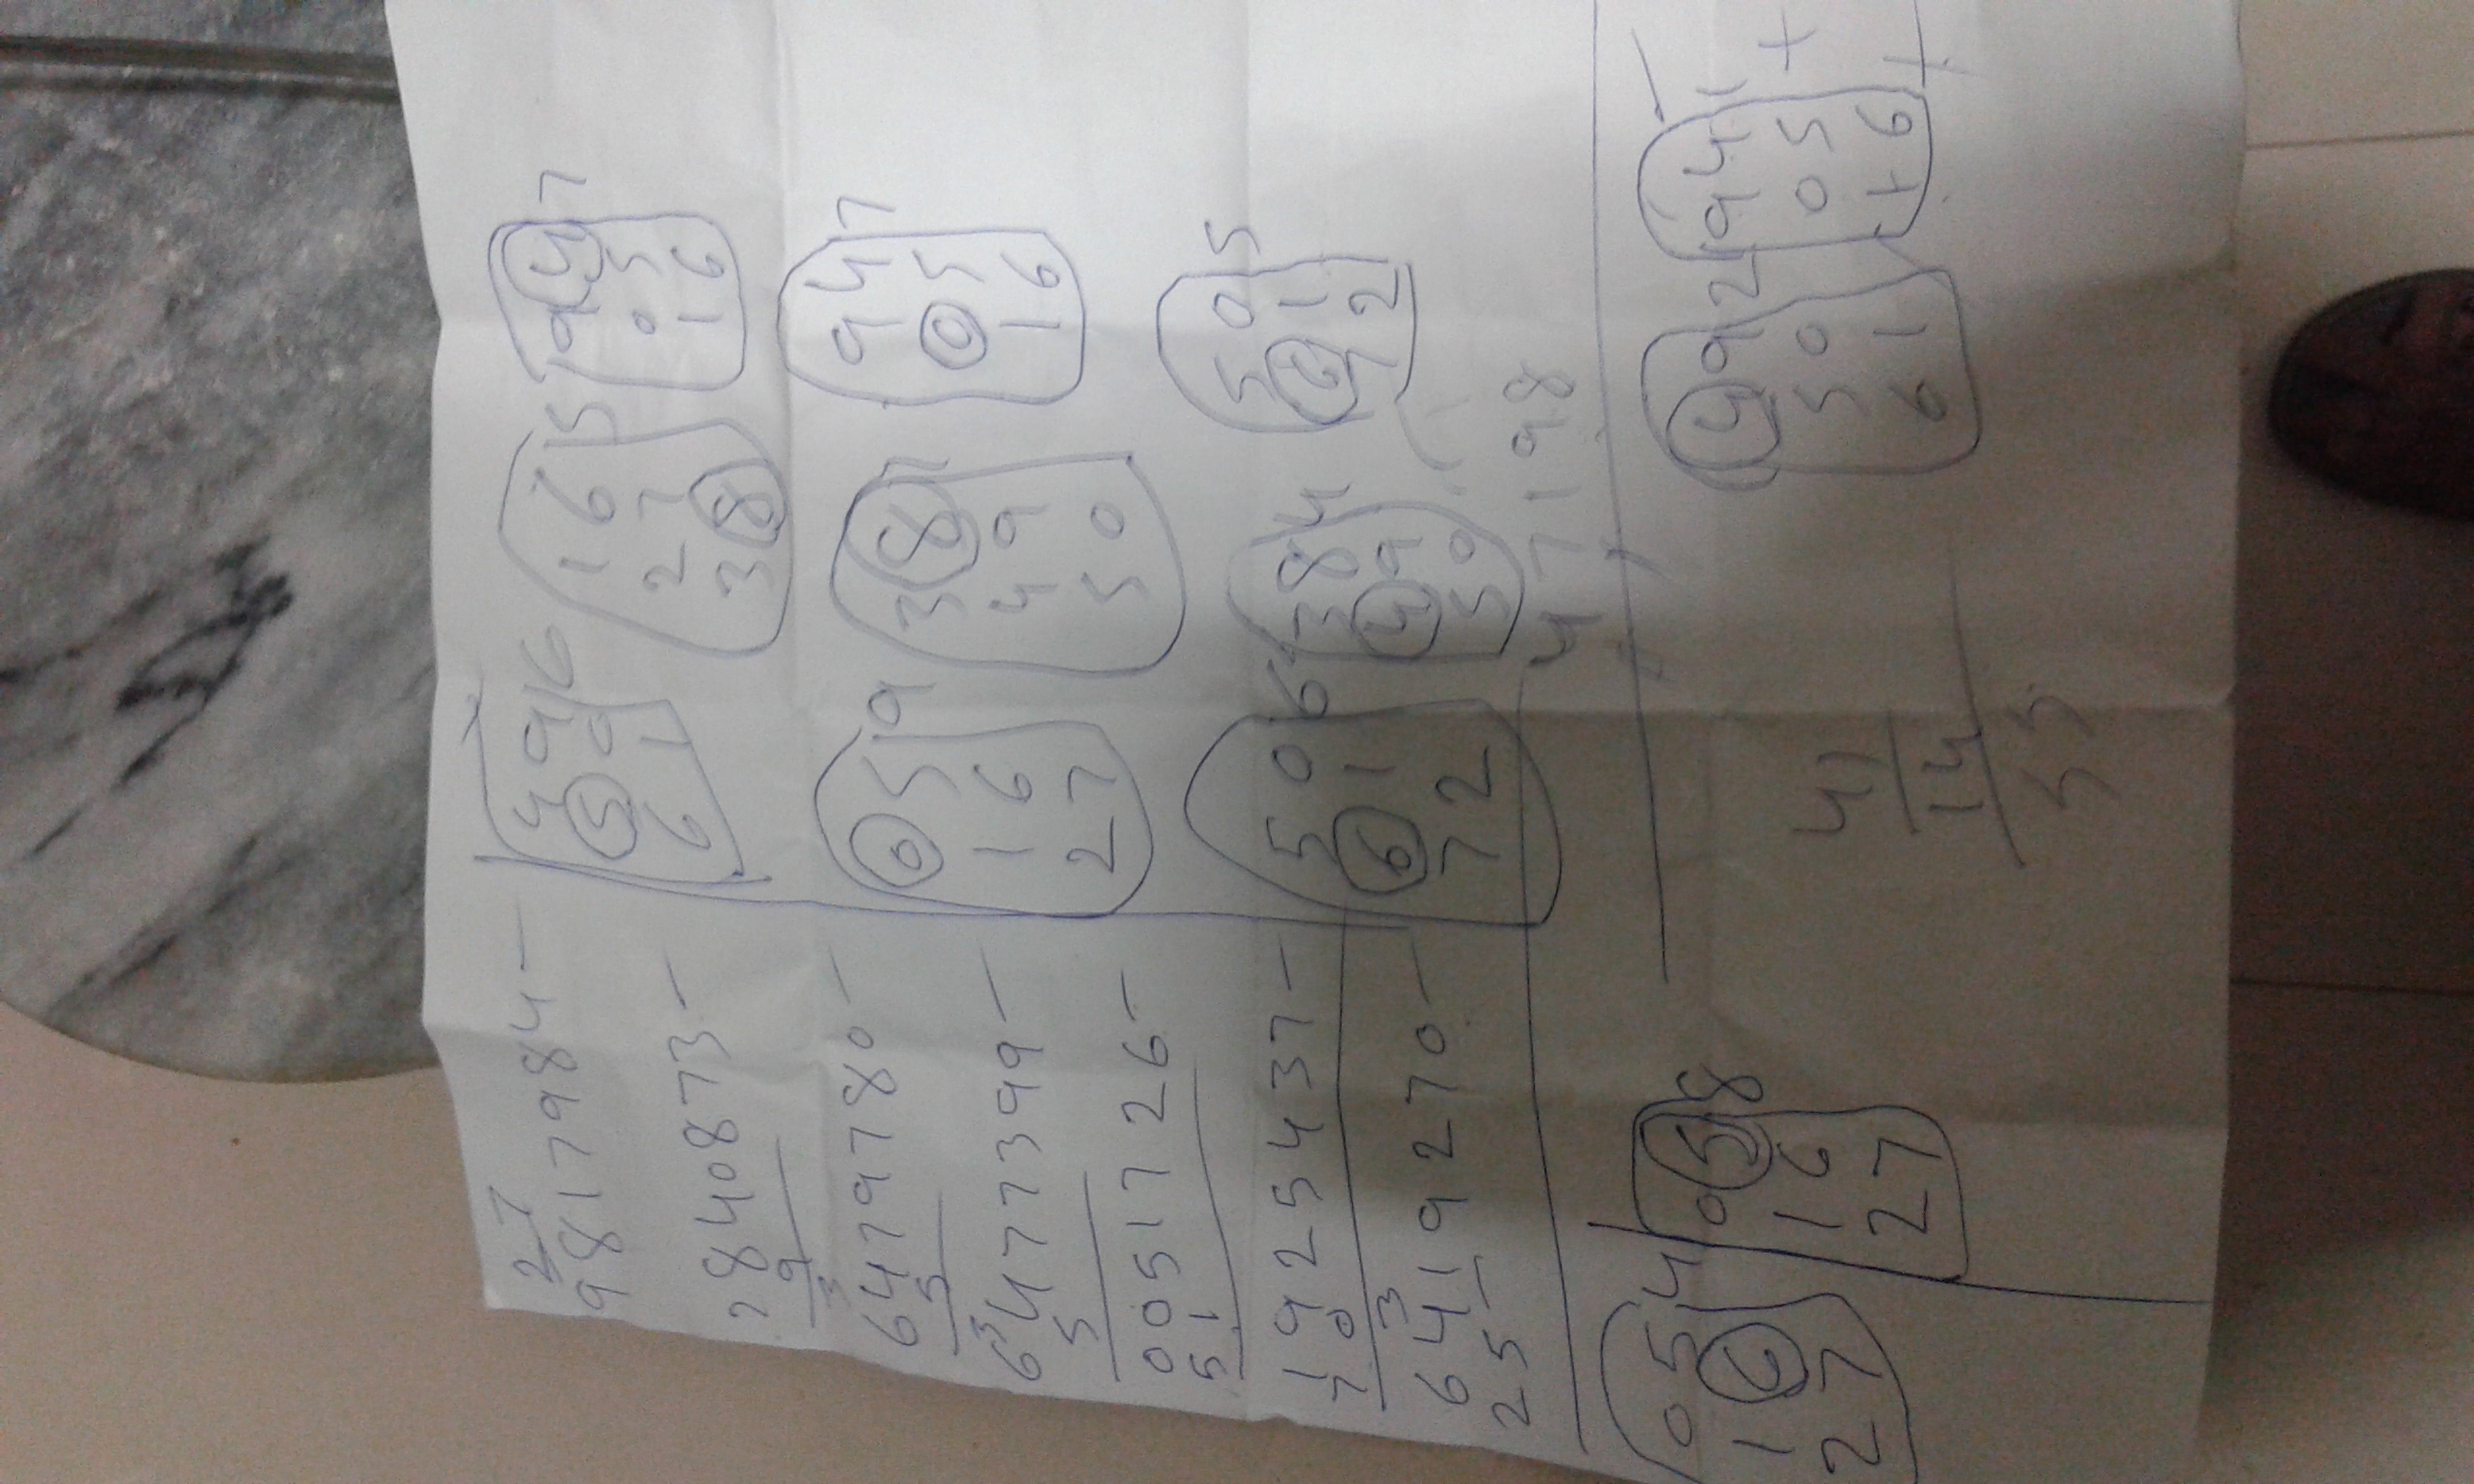 27
9817984-
2840873-
9
3
6479780-
5
3
6477399-
5
0051726-
51
1925437-
70
3
6419270-
25-
49 6
50
61
16 5
27
38
94 7
05
16
05 9
16
27
38 7
49
50
94 7
05
16
50 6
61
72
38 4
49
50
50 5
61
72
47198
05 4
16
27
05 8
16
27
41
14
55
49 2
50
61
94 1
05 +
16 +